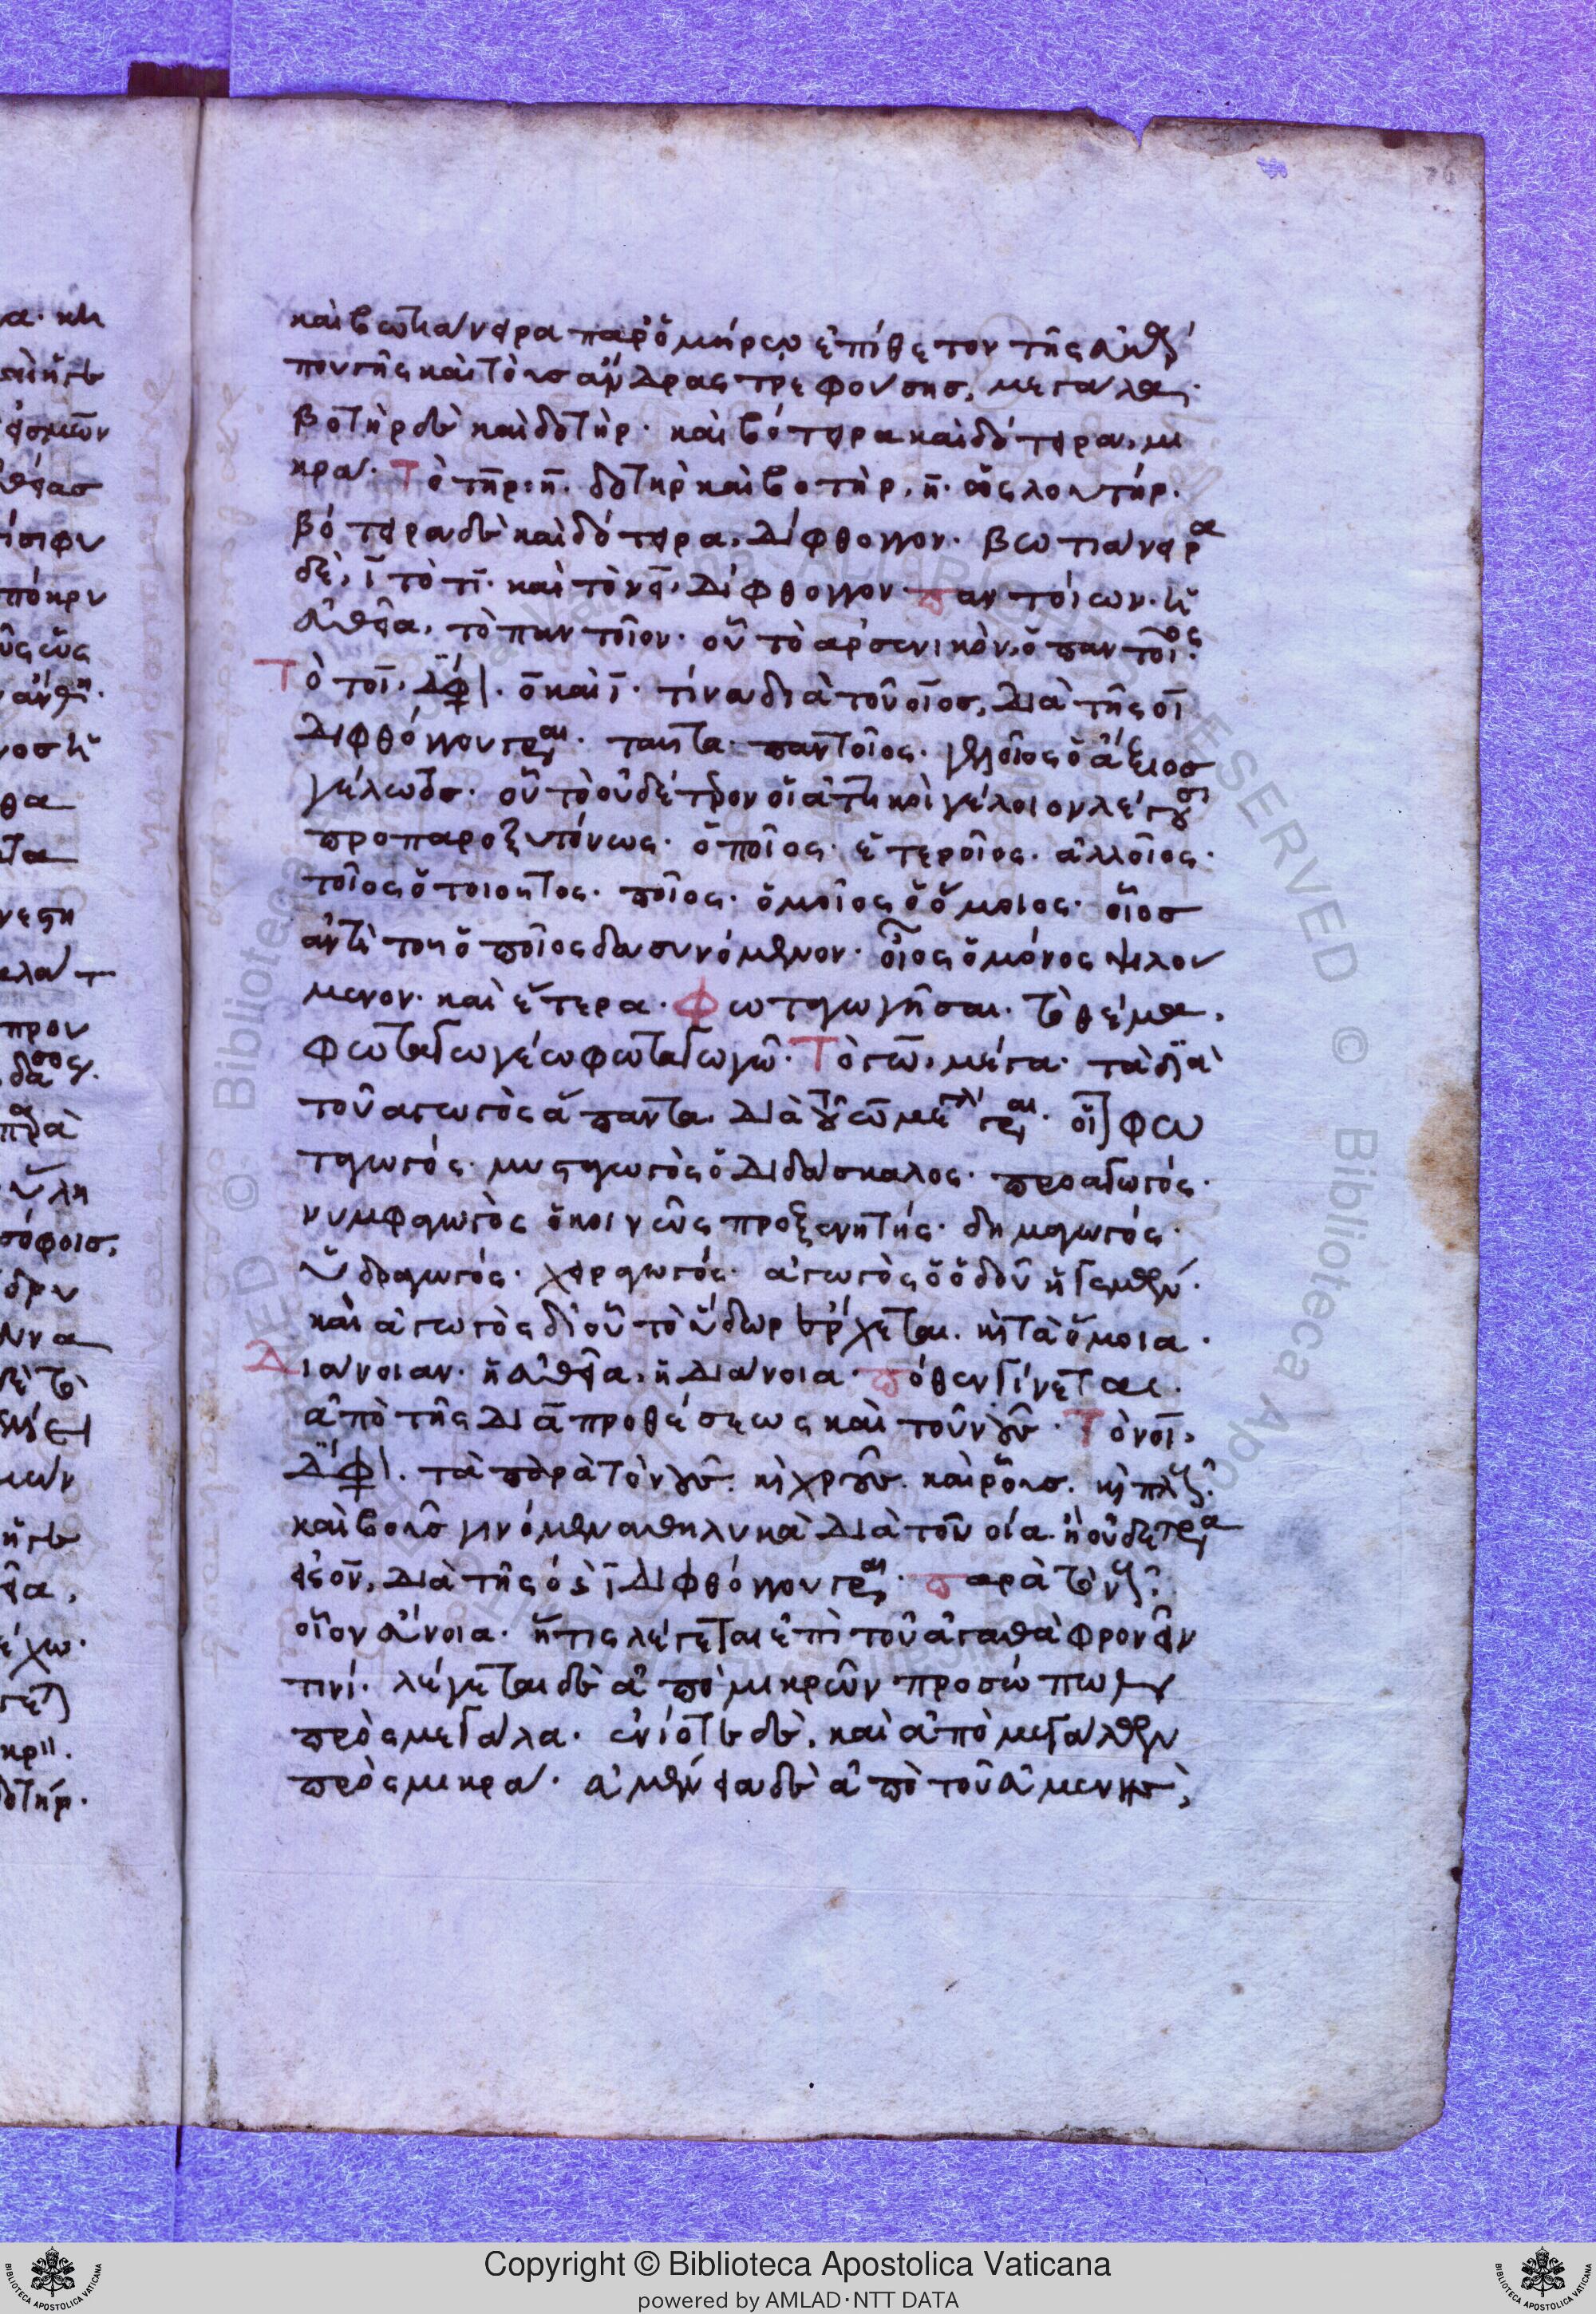 καὶ βωτιάνειρα παρ' ὁμήρω ἐπίθετον τῆς
πουτῆς καὶ τοὺσ ἄνδρας τρεφούσησ, μεγάλα.
βοτὴρ δὲ καὶ δοτὴρ. καὶ βότειρα καὶ δότειρα, μι
κρά. Τὸ τῆρ, η. δοτὴρ καὶ βοτὴρ, η. ὡς λουτήρ.
βότειρα δὲ καὶ δότειρα, δίφθογγον. βωτιάνειρα
δὲ, ϊ τὸ τι. καὶ τὸ νει, δίφθογγον. παντοίων. ἡ
εὐθεῖα, τὸ παντοῖον. οὗ τὸ ἀρσενικὸν, ὁ παντοῖος.
Τὸ τοι, διφ. ο καὶ ϊ. τίνα διὰ τοῦ οῖοσ, διὰ τῆς οι
διφθόγγου γράφεται. ταῦτα. παντοῖος. γελοῖος ὁ ἄξιοσ
γέλωτοσ. οὗ τὸ οὐδέτερον οἱ ἀττικοὶ γέλοιον λέγουσι
προπαροξυτόνως. ὁποῖος. ἑτεροῖος. ἀλλοῖος.
τοῖος ὁ τοιοῦτος. ποῖος. ὁμοῖος ὁ ὅμοιος. οἷοσ
ἀντὶ τοῦ ὁποῖος δασυνόμενον. οἶος ὁ μόνος ψιλού
μενον. καὶ ἕτερα. Φωταγωγῆσαι. τὸ θέμα,
φωταγωγέω φωταγωγῶ. Τὸ γω, μέγα. τὰ διὰ
τοῦ αγωγὸς ἅπαντα, διὰ τοῦ ω μεγάλου γράφεται. οἷον φω
ταγωγός. μυσταγωγὸς ὁ διδάσκαλος. προαγωγός.
νυμφαγωγὸς ὁ κοινῶς προξενητής. δημαγωγός.
ὑδραγωγός. χειραγωγός. ἀγωγὸς ὁ ὁδοῦ ἡγεμών.
καὶ ἀγωγὸς δι' οὗ τὸ ὕδωρ ἔρχεται. καὶ τὰ ὅμοια.
Διάνοιαν. ἡ εὐθεῖα, ἡ διάνοια. πόθεν γίνεται.
ἀπὸ τῆς διὰ προθέσεως καὶ τοῦ νοῦς. Τὸ νοι,
διφ. τὰ παρὰ τὸ νοῦς. καὶ χροῦς. καὶ ῥοῦσ. καὶ πλοῦς.
καὶ βοῦσ γινόμενα θηλυκὰ διὰ τοῦ οία. ἢ οὐδέτερα
εἰς ον, διὰ τῆς ο καὶ ϊ διφθόγγου γράφεται. παρὰ τὸ νοῦς.
οἷον εὔνοια. ἥτις λέγεται ἐπὶ τοῦ ἀγαθὰ φρονεῖν
τινί. λέγεται δὲ ἀπὸ μικρῶν προσώπων
πρὸς μεγάλα. ἐνίοτε δὲ, καὶ ἀπὸ μεγάλων
πρὸς μικρά. εὐμένεια δὲ ἀπὸ τοῦ εὐμενὴς,
Copyright © Biblioteca Apostolica Vaticana
powered by AMLAD·NTT DATA